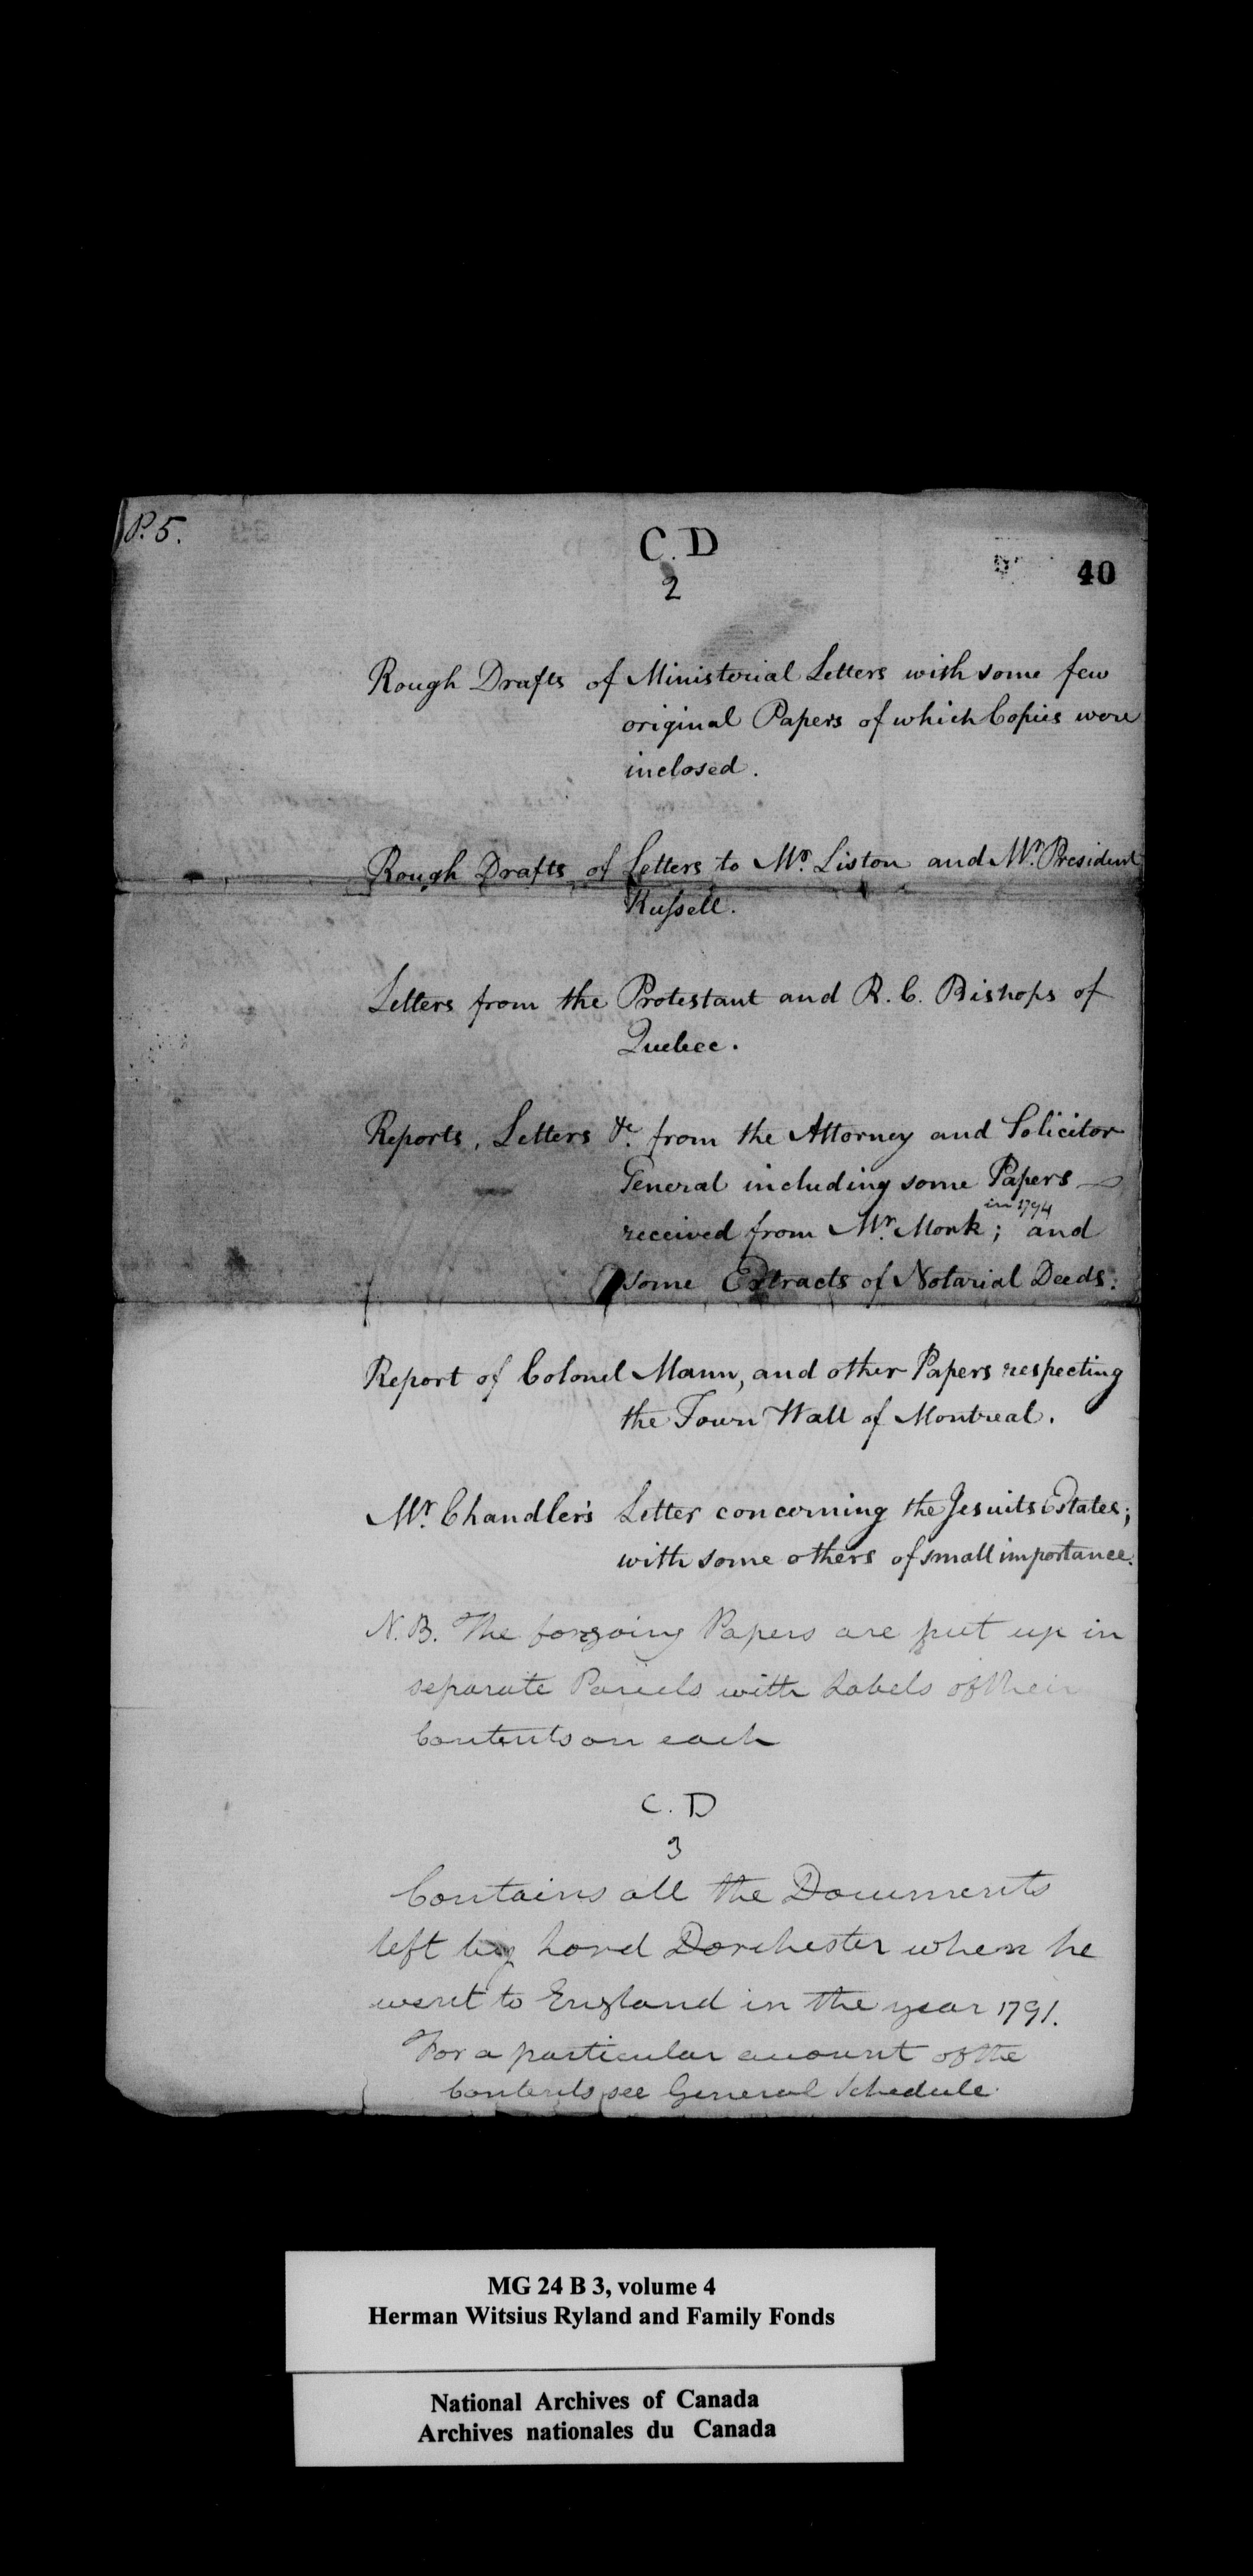 P. 5.
C. D
2
40
Rough Drafts of Ministerial Letters with some few
original Papers of which Copies were
inclosed.
Rough Drafts of Letters to Mr. Liston and Mr. President
Russell.
Letters from the Protestant and R. C. Bishops of
Quebec.
Reports, Letters &c. from the Attorney and Solicitor
General including some Papers
in 1794
received from Mr. Monk; and
some Extracts of Notarial Deeds.
Report of Colonel Mann, and other Papers respecting
the Town Wall of Montreal.
Mr. Chandler's Letter concerning the Jesuits Estates;
with some others of small importance.
N. B. The forgoing Papers are put up in
separate Parcels with Labels of their
Contents on each
C. D
3
Contains all the Documents
left by Lord Dorchester when he
went to England in the year 1791.
For a particular account of the
Contents see General Schedule.
MG 24 B 3, volume 4
Herman Witsius Ryland and Family Fonds
National Archives of Canada
Archives nationales du Canada